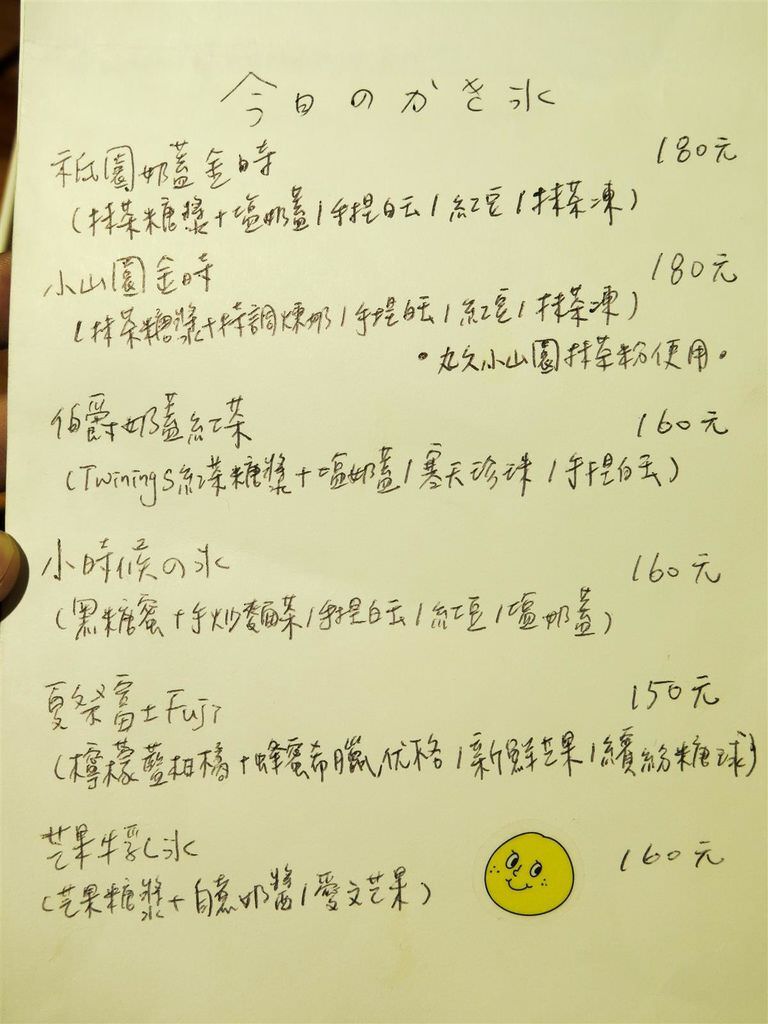 今日のかき氷
祇園奶蓋金時 180元
(抹茶糖漿+塩奶蓋/手提白玉/紅豆/抹茶凍)
小山園金時 180元
(抹茶糖漿+特調煉奶/手提白玉/紅豆/抹茶凍)
•丸久小山園抹茶粉使用•
伯爵奶蓋紅茶 160元
(Twinings紅茶糖漿+塩奶蓋/寒天珍珠/手提白玉)
小時候の氷 160元
(黑糖蜜+手炒麵茶/手提白玉/紅豆/塩奶蓋)
夏祭富士Fuji 150元
(檸檬藍柑橘+蜂蜜希臘优格/新鮮芒果/繽紛糖球)
芒果牛乳氷 160元
(芒果糖漿+自煮奶醬/愛文芒果)